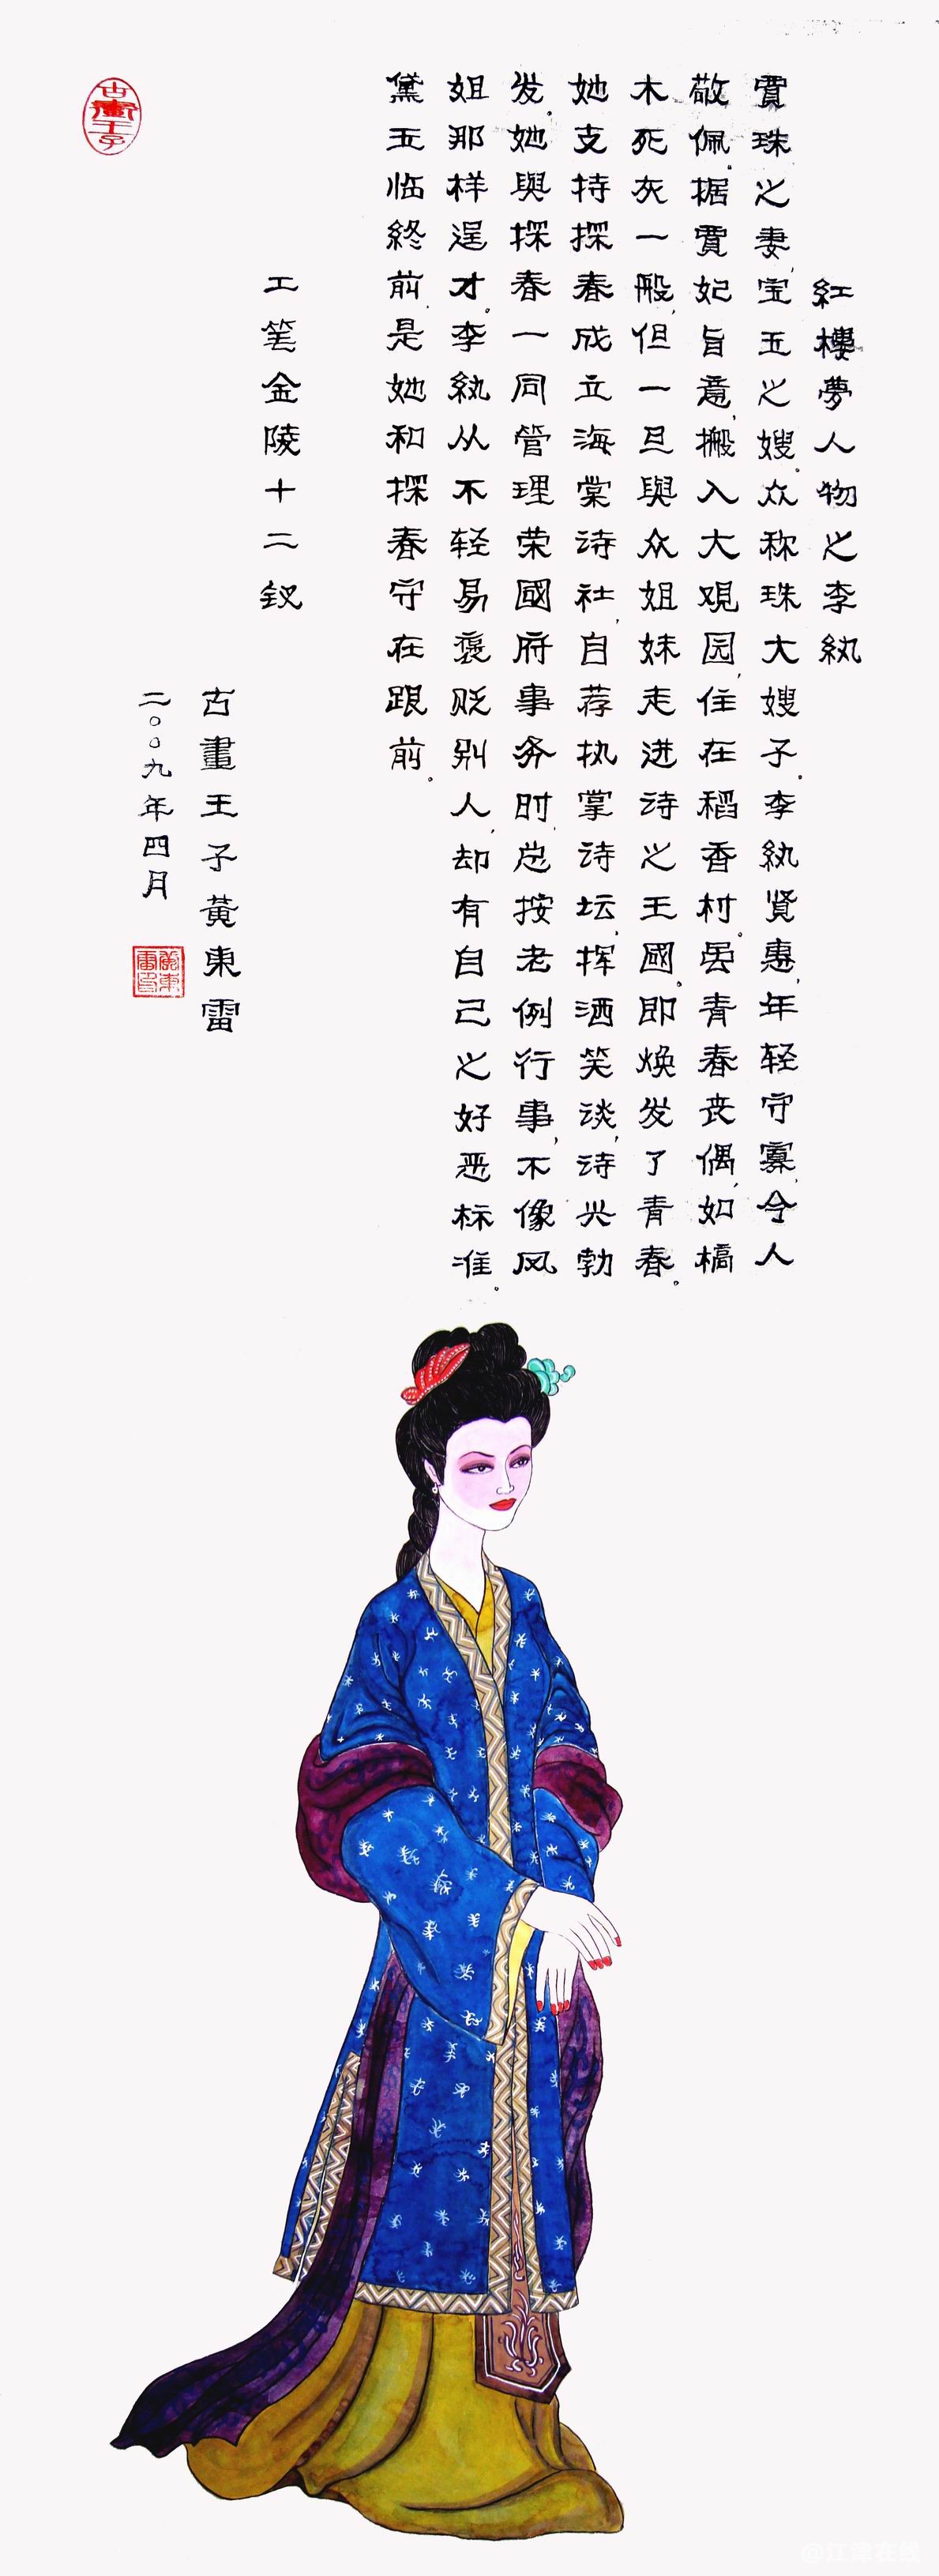 紅樓夢人物之李紈
賈珠之妻,宝玉之嫂。众称珠大嫂子。李紈贤惠,年轻守寡,令人
敬佩。据賈妃旨意,搬入大观园,住在稻香村。虽青春丧偶,如槁
木死灰一般,但一旦與众姐妹走进诗之王國。即焕发了青春。
她支持探春成立海棠诗社,自荐执掌诗坛,挥洒笑谈,诗兴勃
发。她與探春一同管理荣國府事务时,总按老例行事,不像凤
姐那样逞才。李紈从不轻易褒贬别人,却有自己之好恶标准。
黛玉临終前,是她和探春守在跟前。
工笔金陵十二钗
古畫王子黃東雷
二○○九年四月
黃東雷印
古畫王子
@江津在线